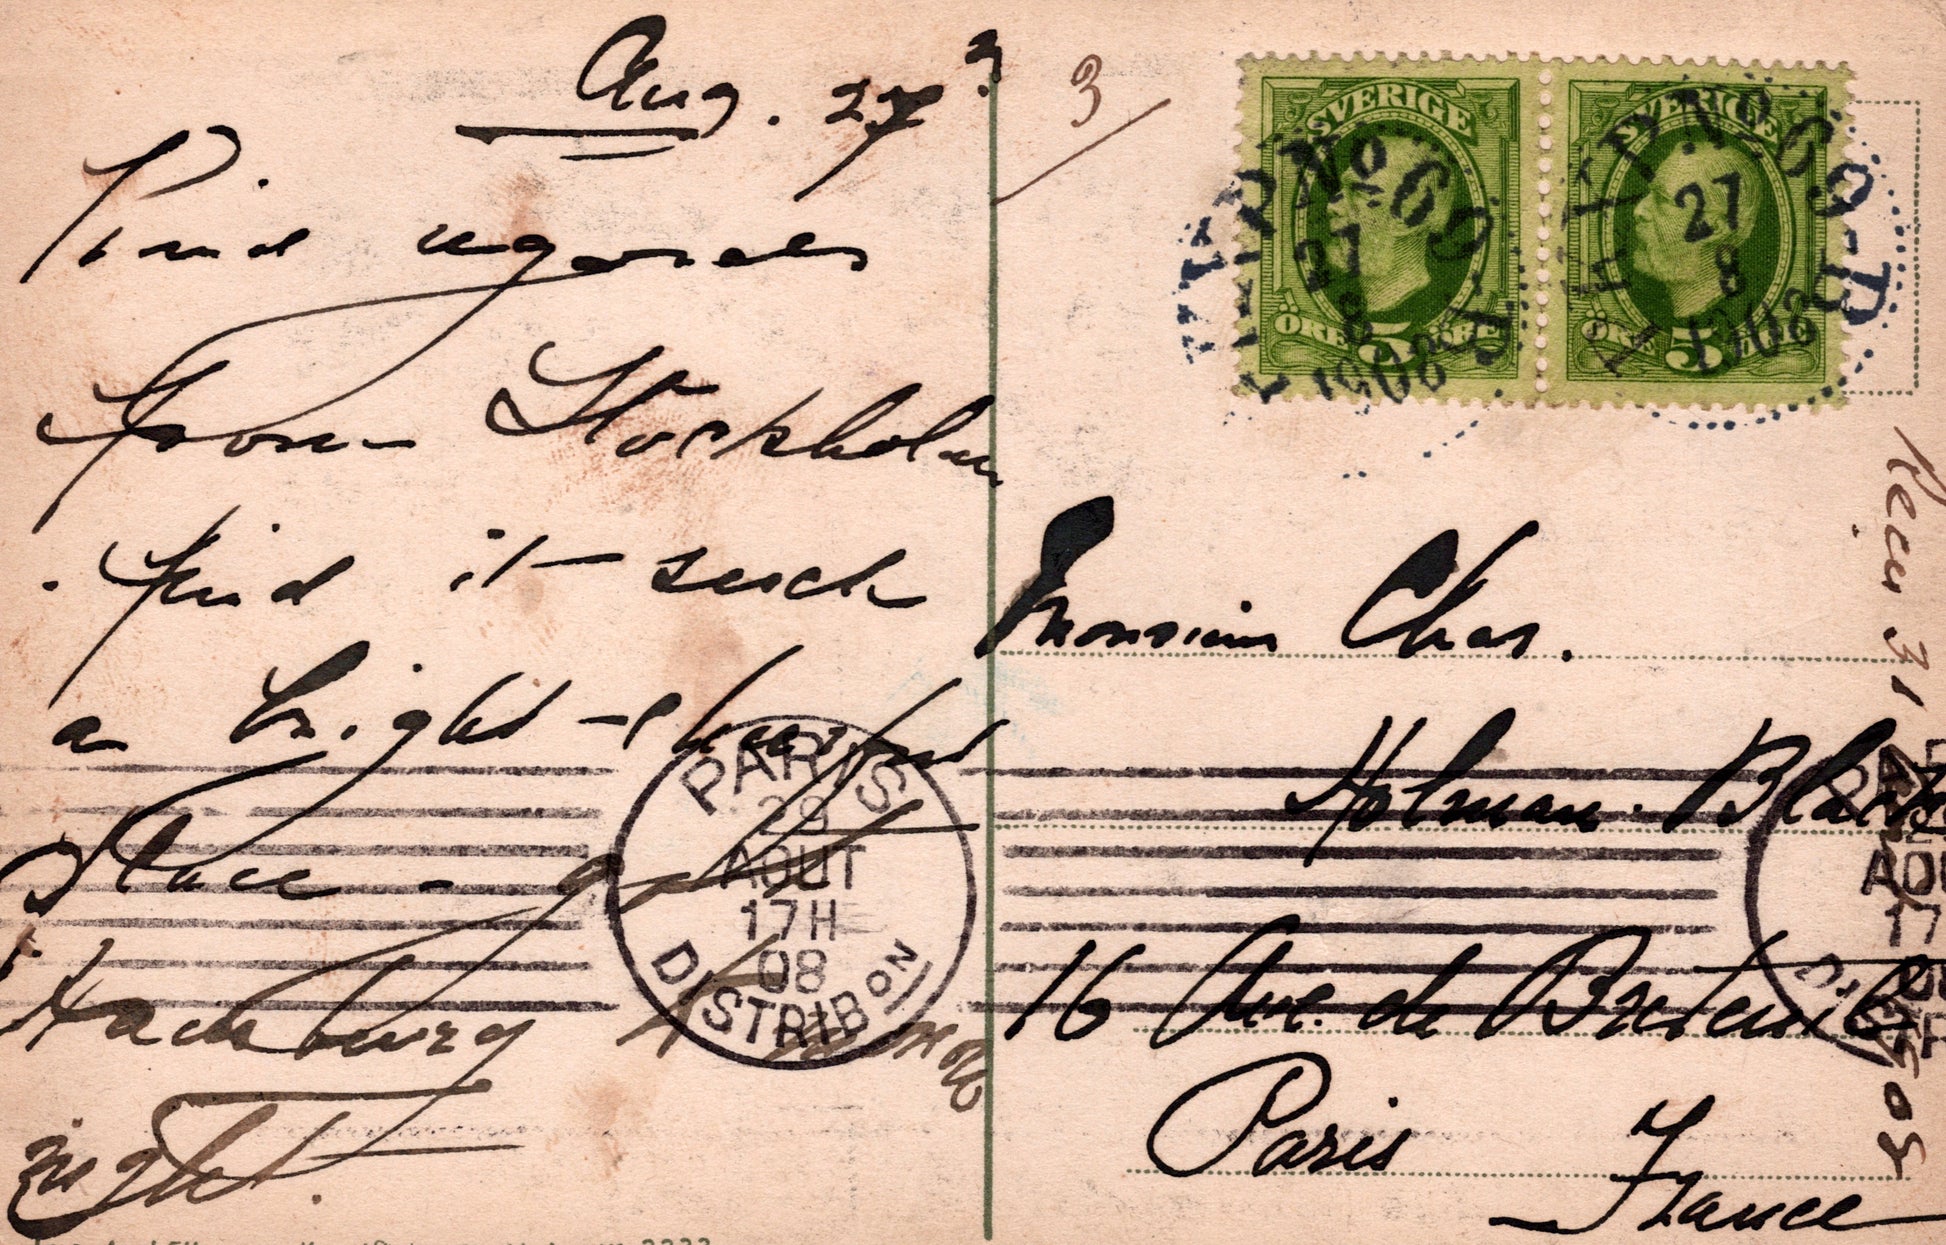 Aug. 27
Kind regards
from Stockholm
find it such
a bright-cheerful
place - go to
Hamburg tomorrow
night.
3
SVERIGE
SVERIGE
5
ÖRE ÖRE
5
ÖRE
PKXP No 69
27
8
1908
PKXP No 69 D
27
8
1908
Monsieur Chas.
Holman-Black
16 Ave. de Breteuil
Paris
France
PARIS
AOUT
17H
08
DISTRIBON
AOU
17
Recu 31
08